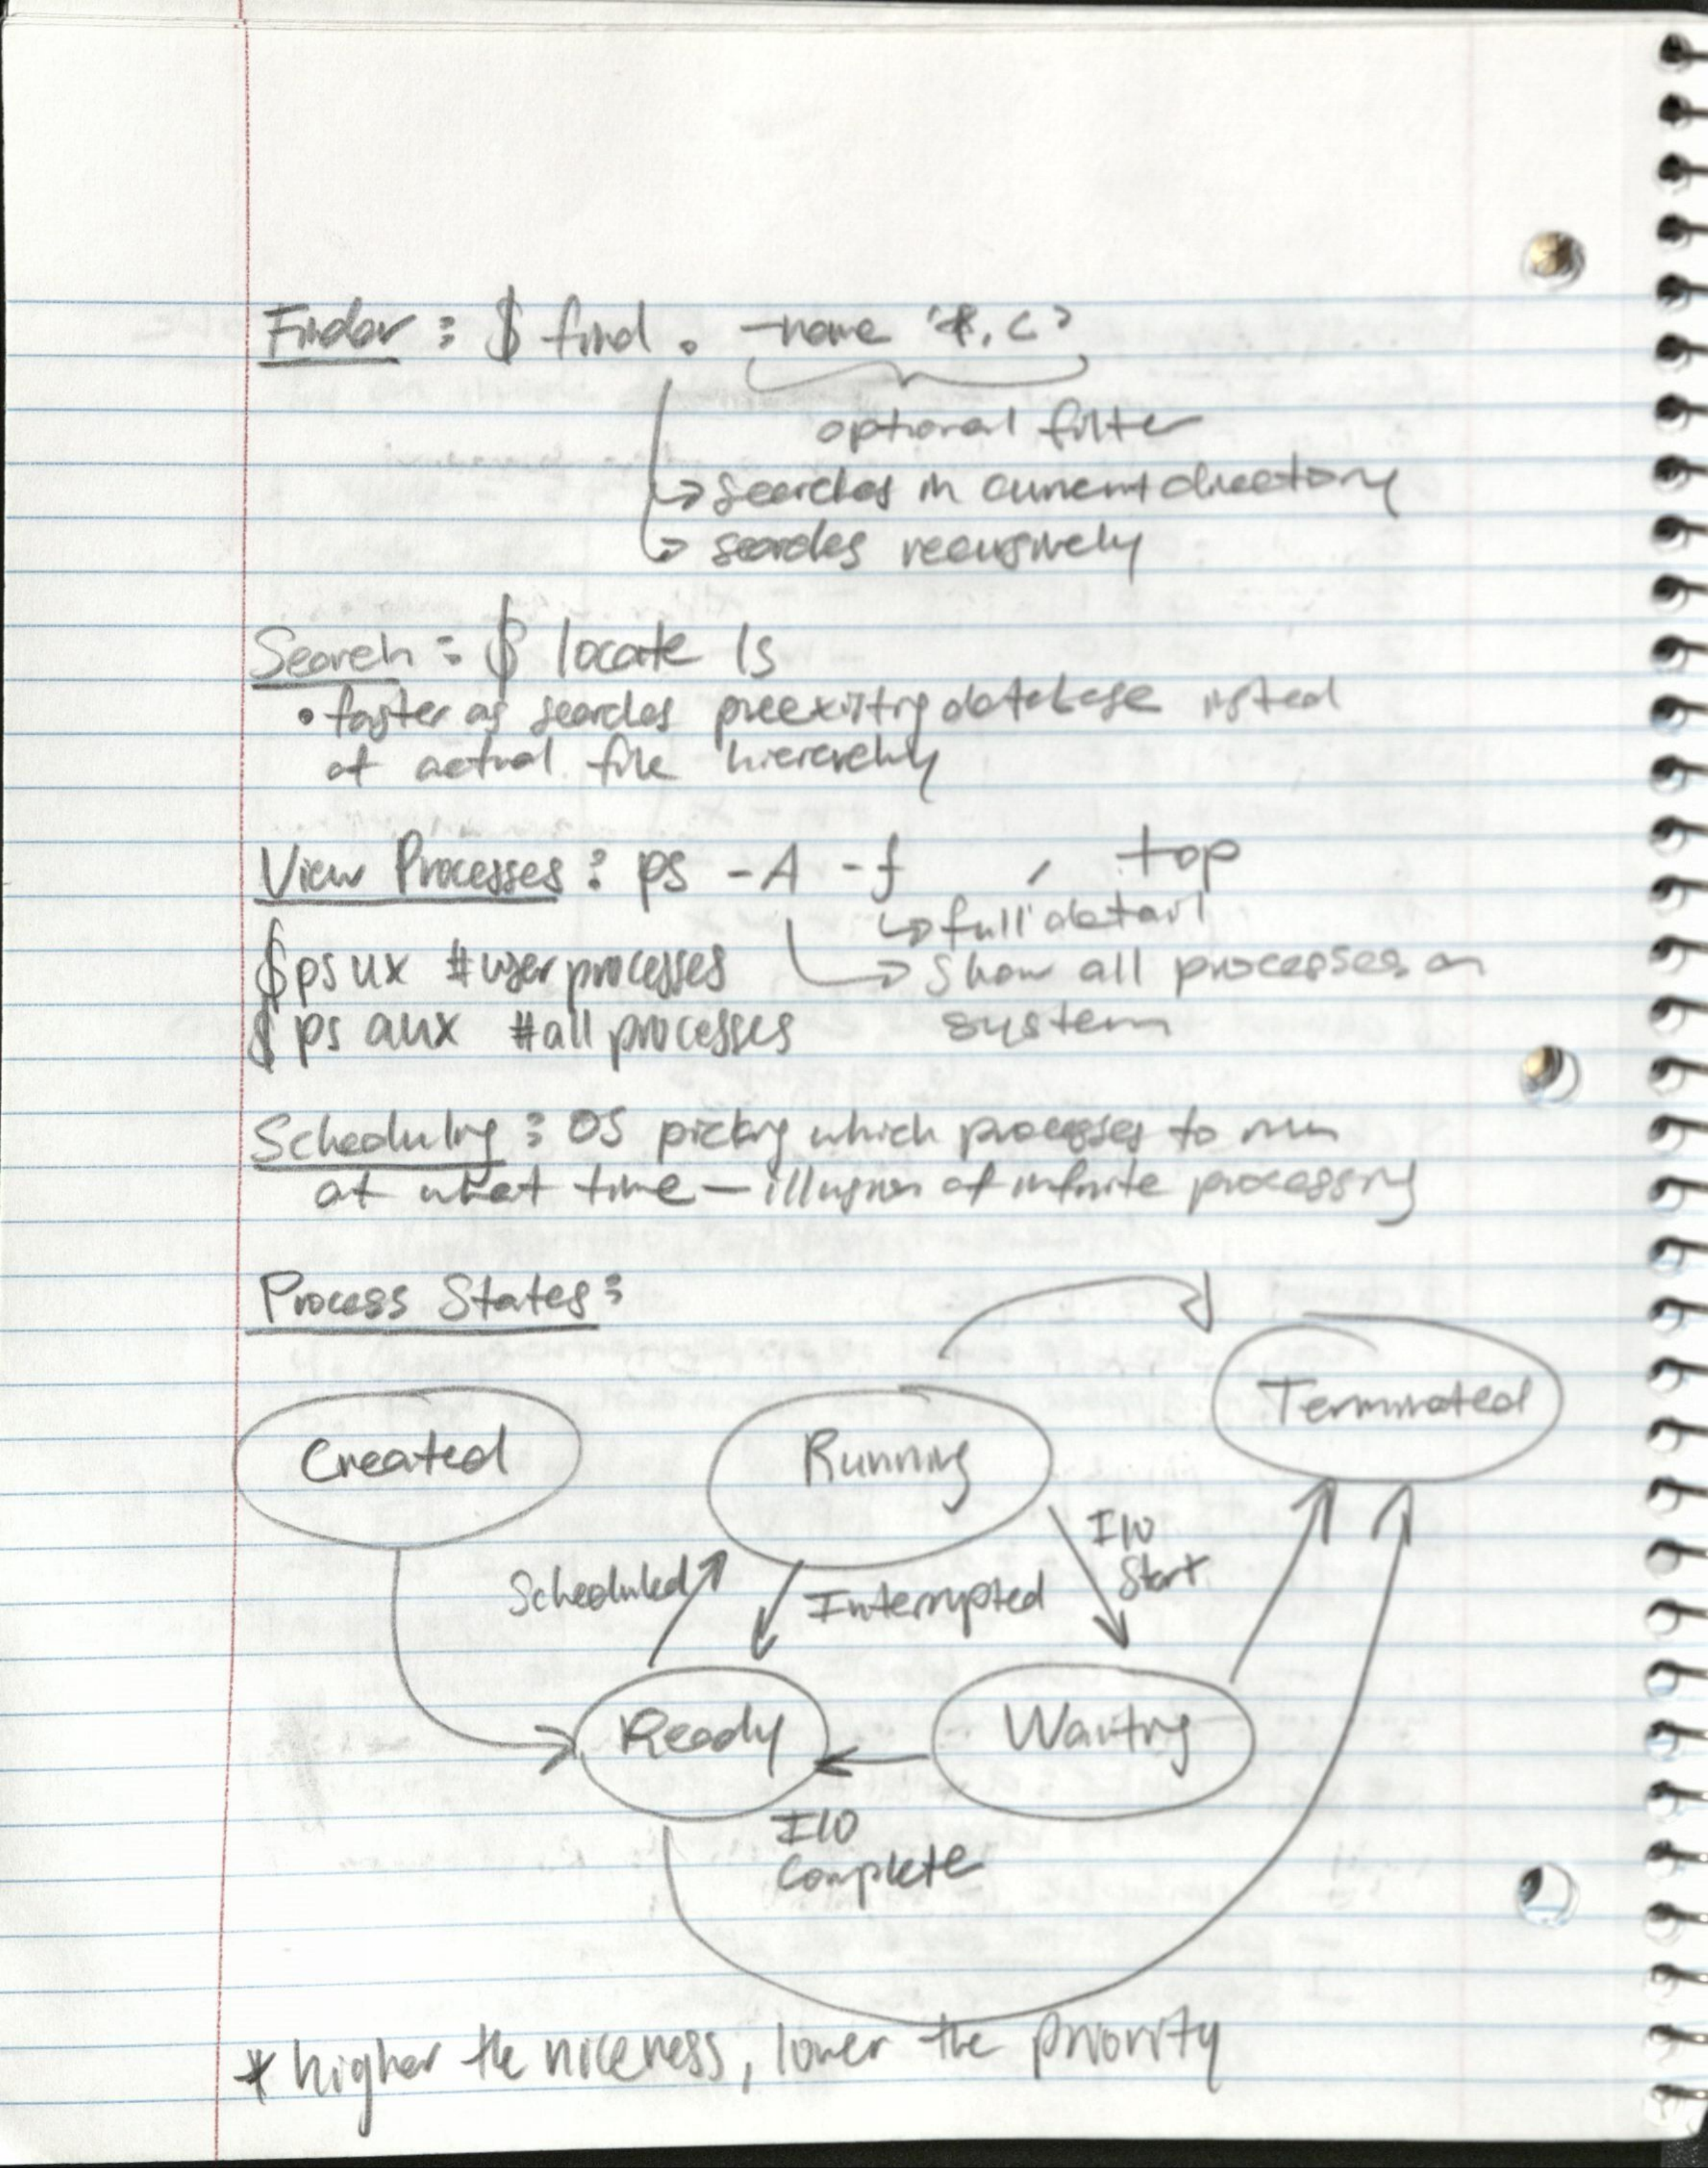 Finder : $ find . -name '*.c'
optional filter
↳ searches in current directory
↳ searches recursively
Search : $ locate ls
• faster as searches preexisting database instead
of actual file hierarchy
View Processes : ps -A -f , top
↳ full detail
$ ps ux #user processes ↳ show all processes on
$ ps aux #all processes system
Scheduling : OS picking which processes to run
at what time — illusion of infinite processing
Process States :
Terminated
Created Running
I/O
Start
Scheduled Interrupted
Ready Waiting
I/O
Complete
* higher the niceness, lower the priority